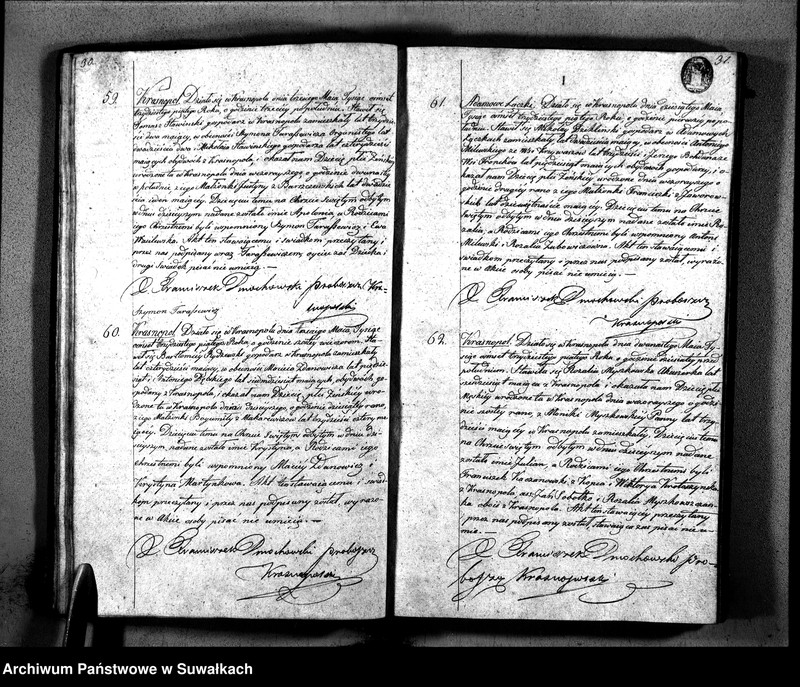 30.
59.
Krasnopol. Działo się w Krasnopolu dnia trzeciego Maja, Tysiąc ośmset
trzydziestego piątego Roku, o godzinie trzeciej po południu. Stawił się
Tomasz Sławiński gospodarz w Krasnopolu zamieszkały lat trzydzie-
ści dwa maiący, w obecności Szymona Tarassewicza Organisty lat
dwadzieścia dwa i Mikołaia Sławińskiego gospodarza lat czterdzieści
maiących obydwóch z Krasnopola, i okazał nam Dziecię płci Żeńskiej
urodzone tu w Krasnopolu dnia wczorayszego o godzinie dwunastej
w południe z jego Małżonki Justyny z lat dwadzie-
ścia ieden maiącej. Dziecięciu temu na Chrzcie świętym odbytym
w dniu dzisieyszym nadane zostało imie Apolonia, a Rodzicami
iego Chrzestnemi byli wspomniony Szymon Tarassewicz i Ewa
Wasilewska. Akt ten stawaiącemu i świadkom przeczytany i
przez nas podpisany wraz Tarassewiczem gdyż zaś Dziecka i
drugi świadek pisać nie umieią. —
X Franciszek Dmochowski proboszcz Kra-
snopolski
Szymon Tarassewicz
60.
Krasnopol. Działo się w Krasnopolu dnia trzeciego Maja, Tysiąc
ośmset trzydziestego piątego Roku, o godzinie szóstej wieczorem. Sta-
wił się Bartłomiej Rydzewski gospodarz w Krasnopolu zamieszkały
lat czterdzieści maiący, w obecności Macieia Zdanowicza lat pięćdzie-
siąt i Antoniego lat siedmdziesiąt maiących, obydwóch go-
spodarzy z Krasnopola, i okazał nam Dziecię płci Żeńskiej uro-
dzone tu w Krasnopolu dnia dzisieyszego, o godzinie dziesiątej rano,
z iego Małżonki Bogumiły z Makarewiczów lat trzydzieści cztery ma-
iącej. Dziecięciu temu na Chrzcie Świętym odbytym w dniu dzi-
sieyszym, nadane zostało imie Krystyna, a Rodzicami iego
chrzestnemi byli wspomniony Maciey Zdanowicz i
Krystyna Martynkowa. Akt ten stawaiącemu i świad-
kom przeczytany i przez nas podpisany został, wyrażo-
ne w Akcie osoby pisać nie umieią. —
X Franciszek Dmochowski proboszcz
Krasnopolski
31.
I
61.
Adamowe Łączki. Działo się w Krasnopolu dnia dziesiątego Maia,
Tysiąc ośmset trzydziestego piątego Roku, o godzinie pierwszej po po-
łudniu. Stawił się Mikołay gospodarz w Adamowych
Łączkach zamieszkały lat trzydzieści maiący, w obecności Antoniego
Milewskiego ze wsi lat trzydzieści i Jerzego
Wsi lat pięćdziesiąt maiących obydwóch gospodarzy, i o-
kazał nam Dziecię płci Żeńskiej urodzone dnia wczorayszego o
godzinie drugiey rano z iego Małżonki Franciszki z Jaworow-
skich lat dziewiętnaście maiącej. Dziecięciu temu na Chrzcie
świętym odbytym w dniu dzisieyszym nadane zostało imie Ro-
zalia, a Rodzicami iego Chrzestnemi byli wspomniony Antoni
Milewski i Rozalia. Akt ten stawaiącemu i
świadkom przeczytany i przez nas podpisany został, wyrażo-
ne w Akcie osoby pisać nie umieią. —
X Franciszek Dmochowski proboszcz
Krasnopolski
62.
Krasnopol. Działo się w Krasnopolu dnia dwunastego Maia, Ty-
siąc ośmset trzydziestego piątego Roku, o godzinie dziesiątej przed
południem. Stawiła się Rozalia Myszkowska Akuszerka lat
maiąca z Krasnopola i okazała nam Dziecię płci
Męzkiej urodzone tu w Krasnopolu dnia wczorayszego o godzi-
nie szóstej rano, z Moniki Myszkowskiej Panny lat trzy-
dzieści maiącej w Krasnopolu zamieszkałej. Dziecięciu temu
na Chrzcie Świętym odbytym w dniu dzisieyszym nadane
zostało imie Julian, a Rodzicami iego Chrzestnemi byli
Franciszek Kaczanowski z i Wiktorya
z Krasnopola assys. Jan Sobotko i Rozalia Myszkowszczan-
ka oboie z Krasnopola. Akt ten stawaiącey przeczytany
przez nas podpisany został, stawaiąca zaś pisać nie u-
mie. —
X Franciszek Dmochowski pro-
boszcz Krasnopolski
Archiwum Państwowe w Suwałkach